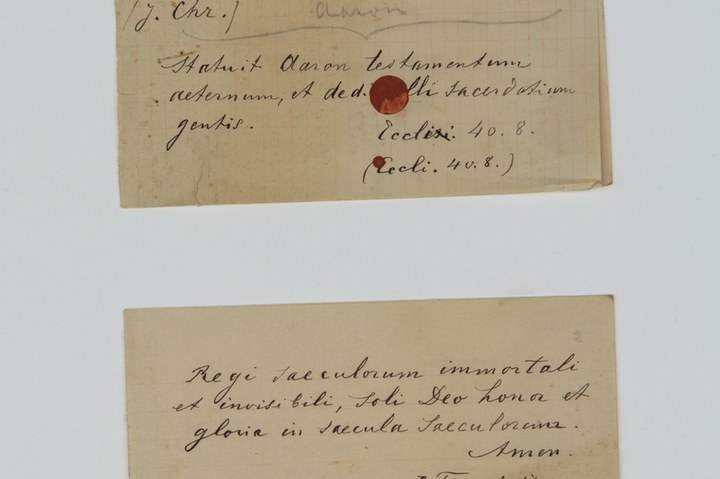 (J. Chr.) Aaron
Statuit Aaron testamentum
aeternum, et ded. illi sacerdotium
gentis.
Eccles. 40. 8.
(Eccli. 40. 8.)
Regi saeculorum immortali
et invisibili, soli Deo honor et
gloria in saecula saeculorum.
Amen.